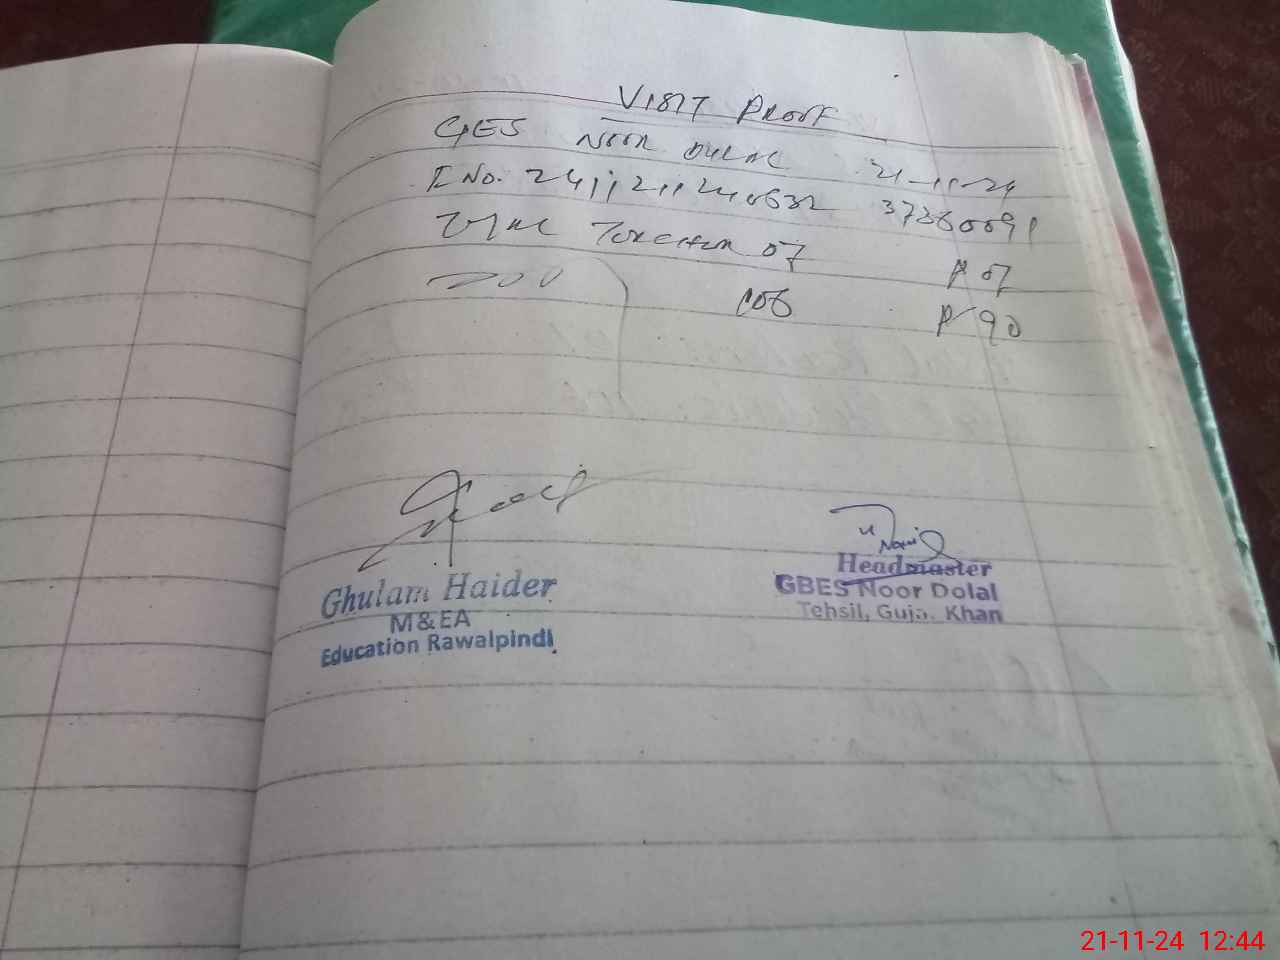 VISIT PROOF
GES NOOR DULAL 21-11-24
I No. 241121124 0632 37360091
Total Teacher 07 P 07
106 P 90
Ghulam Haider
M&EA
Education Rawalpindi
Headmaster
GBES Noor Dolal
Tehsil, Gujar Khan
21-11-24 12:44